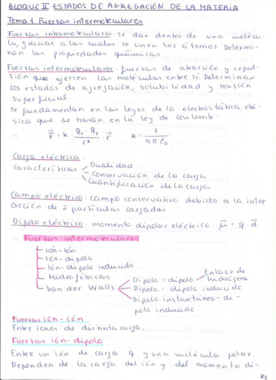 BLOQUE II ESTADOS DE AGREGACIÓN DE LA MATERIA
Tema 1. Fuerzas intermoleculares
Fuerzas intramoleculares: se dan dentro de una molécu-
la, gracias a las cuales se unen los átomos. Determi-
nan las propiedades químicas.
Fuerzas intermoleculares: fuerzas de atracción y repul-
sión que ejercen las moléculas entre sí. Determinan
los estados de agregación, solubilidad y tensión
superficial.
Se fundamentan en las leyes de la electrostática clá-
sica que se basan en la ley de coulomb.
Carga eléctrica
Características
Dualidad
Conservación de la carga
Cuantificación de la carga
Campo eléctrico: campo conservativo debido a la inter
acción de 2 partículas cargadas.
Dipolo eléctrico: momento dipolar eléctrico: μ = q · d
Fuerzas intermoleculares
Ión-ión
Ión-dipolo
Ión-dipolo inducido
Hidrofóbicas
Van der Walls
Dipolo-dipolo
Enlace de
hidrógeno
Dipolo-dipolo inducido
Dipolo instantáneo-di-
polo inducido
Fuerzas ión-ión
Entre iones de distinta carga.
Fuerzas ión-dipolo
Entre un ión de carga q y una molécula polar
Dependen de la carga del ión y del momento di-